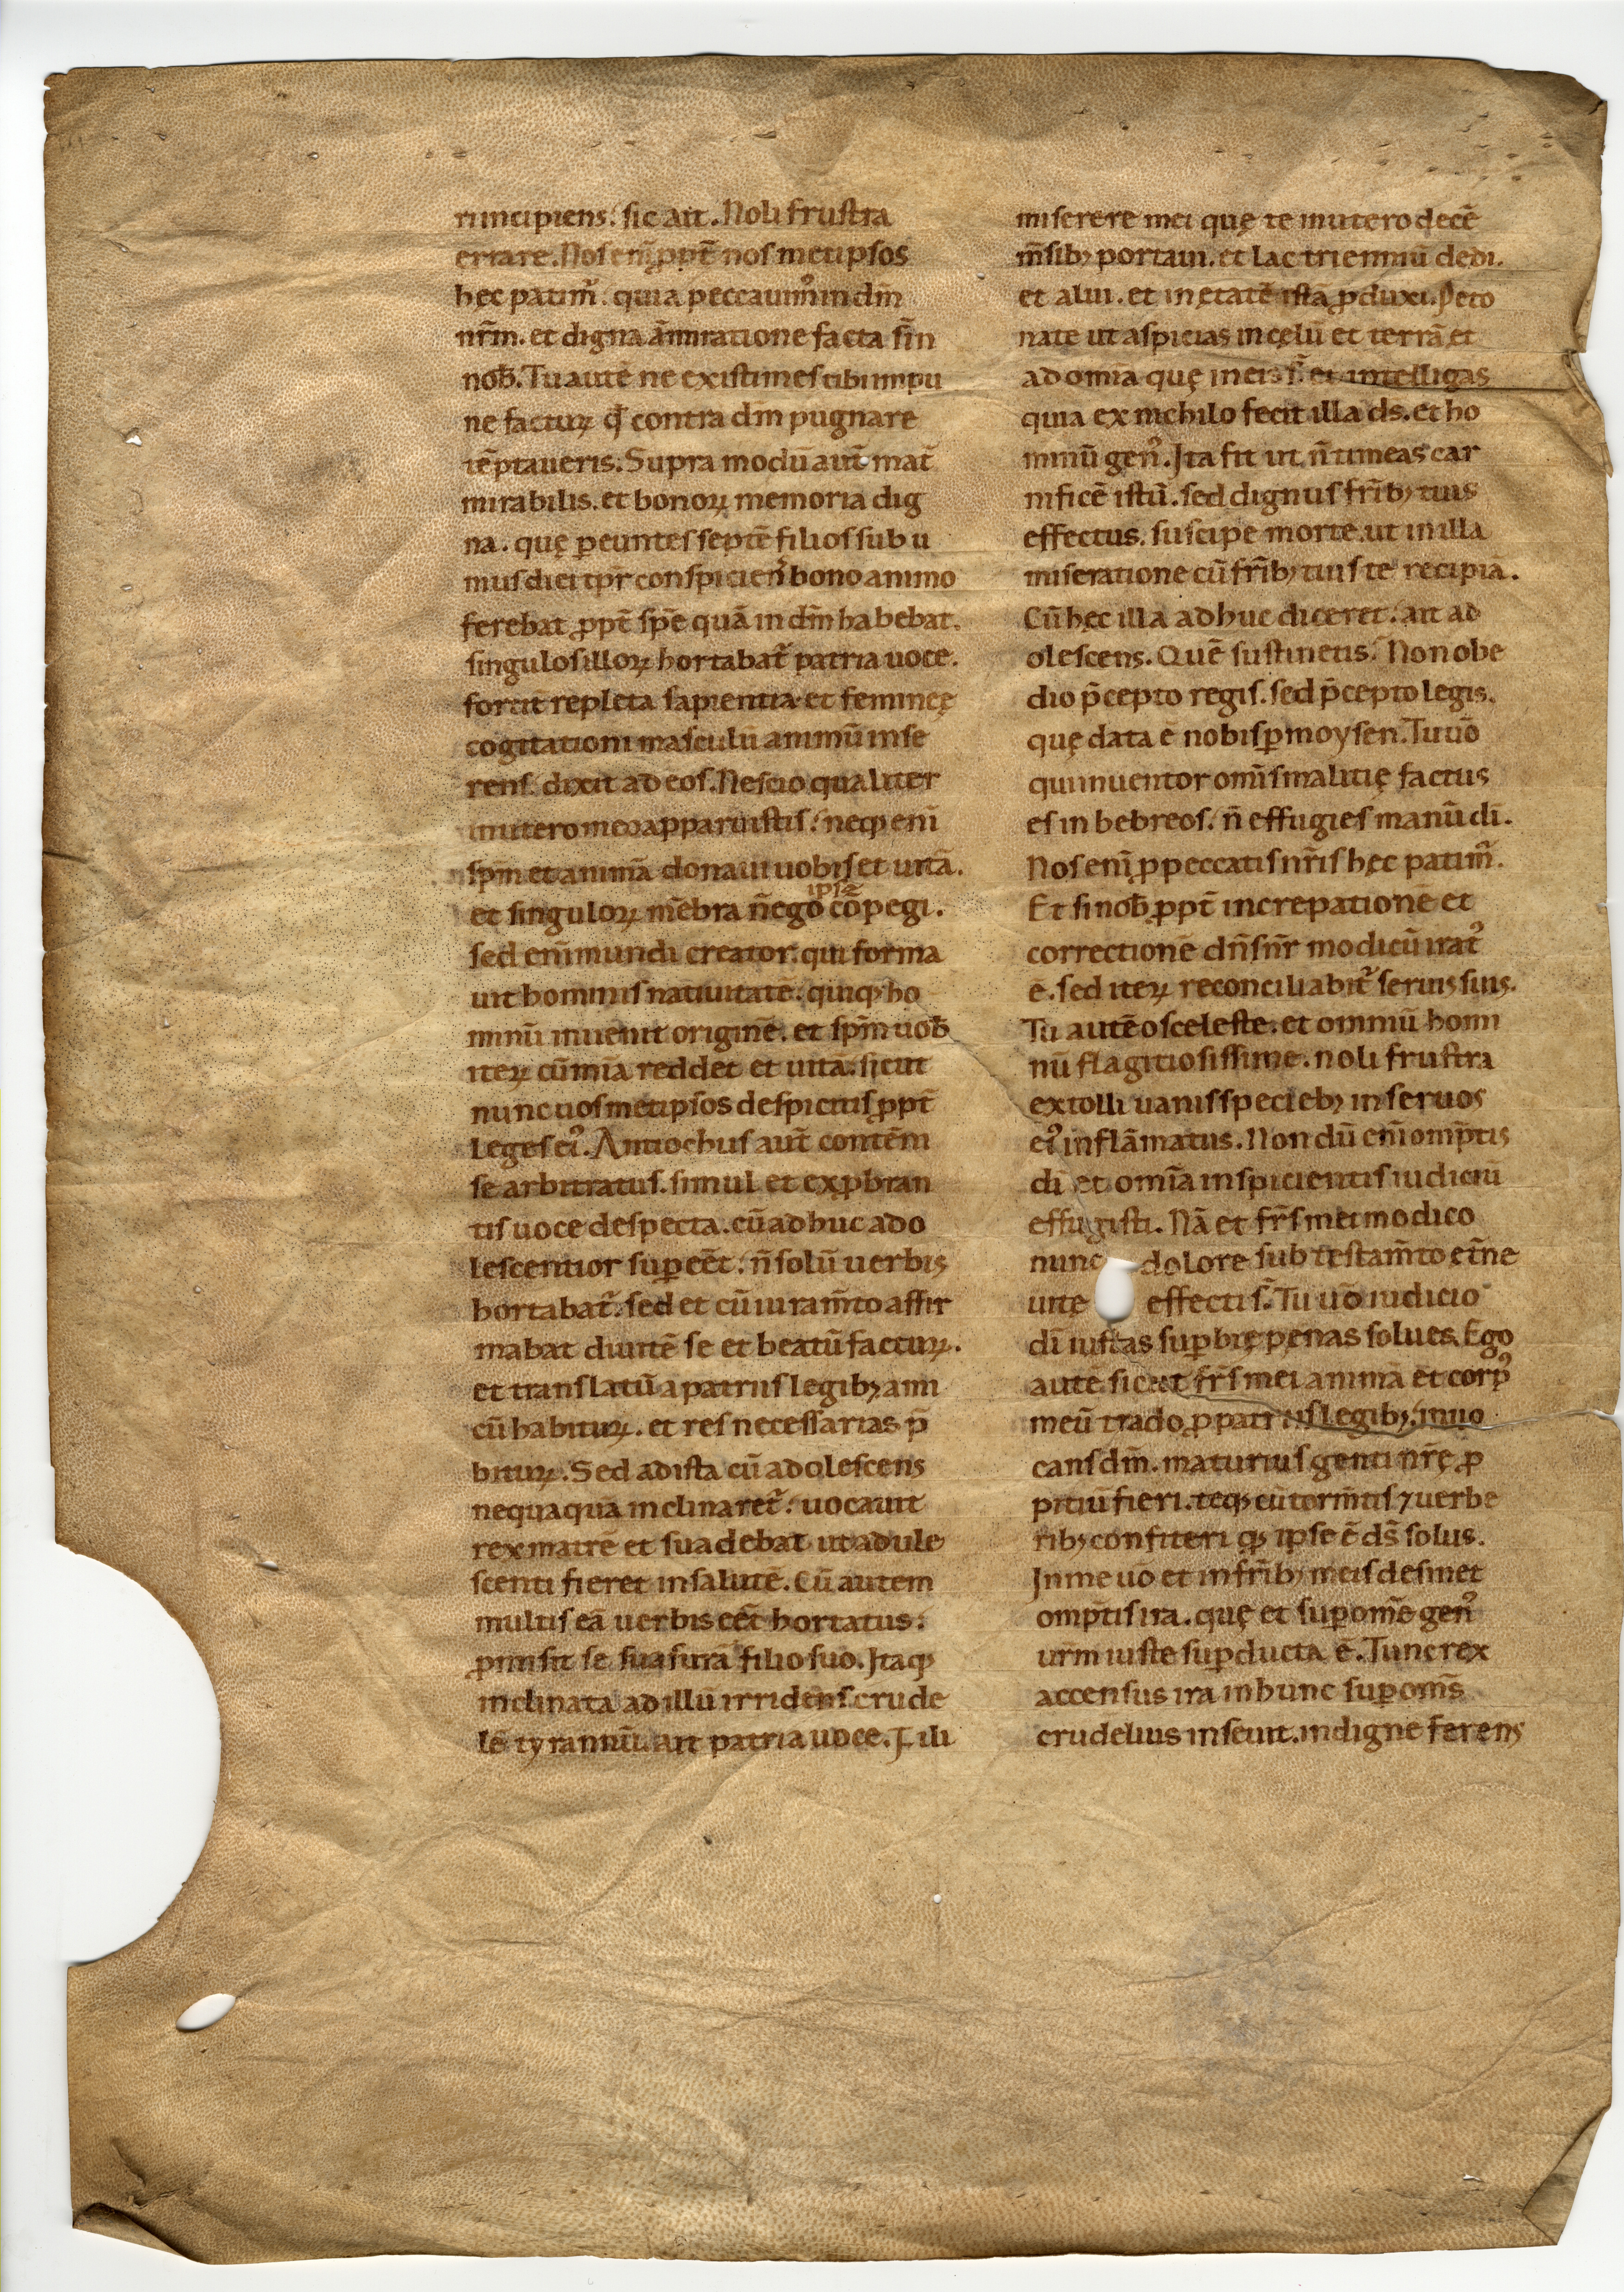 ri incipiens. sic ait. Noli frustra
errare. Nos eni̅ ꝓpt̅ nosmetipsos
hęc patim᷒. quia peccauim᷒ in dm̅
nr̅m. et digna ammiratione facta sīn
nob̅. Tu aute̅ ne existimes tibi impu
ne facturꝝ qd̕ contra dm̅ pugnare
te̅ptaueris. Supra modu̅ aut̅ mat̅
mirabilis. et bonoꝝ memoria dig
na. quę ꝑeuntes septe̅ filios sub u
nius diei tpr̅ conspicien᷒ bono animo
ferebat ꝓpt̅ spe̅ qua̅ in dm̅ habebat.
singulos illoꝝ hortabat᷒ patria uoce.
fortit̅ repleta sapientia. et feminęę
cogitationi masculu̅ animu̅ inse
rens. dixit ad eos. Nescio qualiter
in utero meo apparuistis. neqꝫ eni̅
spm̅ et anima̅ donaui uobis et uita̅.
et singuloꝝ me̅bra n̅ ego ipsa co̅pegi.
sed eni̅ mundi creator. qui forma
uit hominis natiuitate̅. quiqꝫ ho
minu̅ inuenit origine̅. et spm̅ uob̅
iteꝝ cu̅ mi̅a reddet et uita̅. sicut
nunc uosmetipsos despicitis ꝓpt̅
leges ei᷒. Antiochus aut̅ conte̅m
se arbitratus. simul et exꝓbran
tis uoce despecta. cu̅ adhuc ado
lescentior suꝑee̅t. n̅ solu̅ uerbis
hortabat᷒. sed et cu̅ iuram̅to affir
mabat diuite̅ se et beatu̅ facturꝝ.
et translatu̅ a patriis legibꝫ ami
cu̅ habiturꝝ. et res necessarias p̅
biturꝝ. Sed ad ista cu̅ adolescens
nequaqua̅ inclinaret᷒. uocauit
rex matre̅ et suadebat ut adule
scenti fieret in salute̅. Cu̅ autem
multis ea̅ uerbis ee̅t hortatus.
ꝓmisit se suasura̅ filio suo. Itaqꝫ
inclinata ad illu̅ irridens crude
le̅ tyrannu̅. ait patria uoce. Fili
miserere mei quę te in utero dece̅
m̅sibꝫ portaui. et lac trienniu̅ dedi.
et alui. et in ętate̅ ista̅ ꝓduxi. Peto
nate ut aspicias in cęlu̅ et terra̅ et
ad omia quę in eis s̅. et intelligas
quia ex nichilo fecit illa ds. et ho
minu̅ gen᷒. Ita fit ut n̅ timeas car
nifice̅ istu̅. sed dignus fr̅ibꝫ tuis
effectus. suscipe morte̅. ut in illa
miseratione cu̅ fr̅ibꝫ tuis te recipia̅.
Cu̅ hęc illa adhuc diceret. ait ad
olescens. Que̅ sustinetis. Non obe
dio p̅cepto regis. sed p̅cepto legis.
quę data e̅ nobis ꝑ moysen. Tu uo̅
qui inuentor om̅is malitię factus
es in hebreos. n̅ effugies manu̅ di̅.
Nos eni̅ ꝓ peccatis nr̅is hęc patim᷒.
Et si nob̅ ꝓpt̅ increpatione̅ et
correctione̅ dn̅s nr̅ modicu̅ irat᷒
e̅. sed iteꝝ reconciliabit᷒ seruis suis.
Tu aute̅ o sceleste. et omniu̅ homi
nu̅ flagitiosissime. noli frustra
extolli uanis speciebꝫ in seruos
ei᷒ infla̅matus. Nondu̅ eni̅ omp̅tis
di̅ et omi̅a inspicientis iudiciu̅
effugisti. Na̅ et fr̅s mei modico
nunc dolore sub testam̅to et̅ne
uitę effecti s̅. Tu uo̅ iudicio
di̅ iustas suꝑbię penas solues. Ego
aute̅ sicut fr̅s mei anima̅ et corp᷒
meu̅ trado ꝓ patriis legibꝫ. inuo
cans dm̅. maturius genti nr̅ę ꝓ
pitiu̅ fieri. teqꝫ cu̅ torm̅tis ⁊ uerbe
ribꝫ confiteri qꝫ ipse e̅ ds̅ solus.
In me uo̅ et in fr̅ibꝫ meis desinet
omp̅tis ira. quę et suꝑ om̅e gen᷒
urm̅ iuste suꝑducta e̅. Tunc rex
accensus ira in hunc suꝑ oms̅
crudelius inseuit. indigne ferens